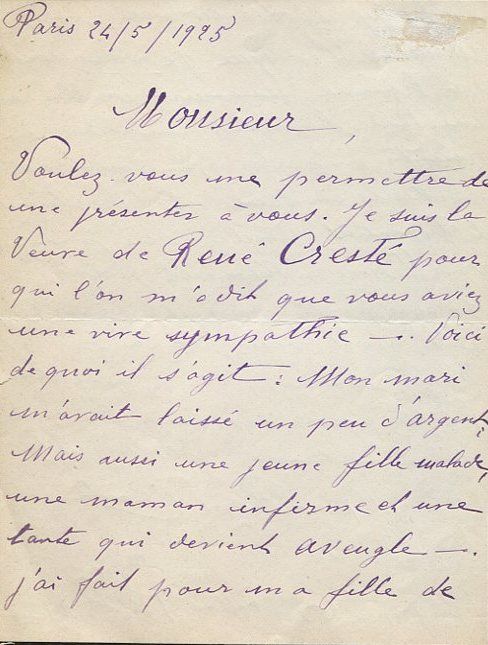 Paris 24/5/1925
Monsieur,
Voulez-vous me permettre de
me présenter à vous. Je suis la
Veuve de René Cresté pour
qui l'on m'a dit que vous aviez
une vive sympathie —. Voici
de quoi il s'agit : Mon mari
m'avait laissé un peu d'argent ;
Mais aussi une jeune fille malade,
une maman infirme et une
tante qui devient aveugle —.
j'ai fait pour ma fille de